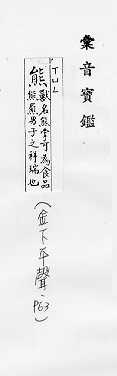 彙音寶鑑
TUL
熊
獸名熊掌可為食品
熊羆男子之祥瑞也
(金下平聲、P63)